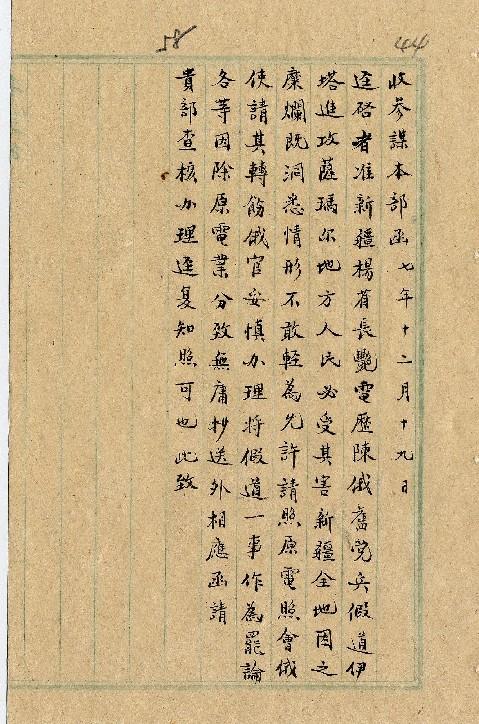 44
58
收參謀本部函七年十二月十九日
逕啓者准新疆楊省長艷電歷陳俄舊党兵假道伊
塔進攻薩瑪尔地方人民必受其害新疆全地因之
糜爛既洞悉情形不敢輕為允許請照原電照會俄
使請其轉飭俄官妥慎办理将假道一事作為罷論
各等因除原電業分致無庸抄送外相應函請
貴部查核办理逕复知照可也此致